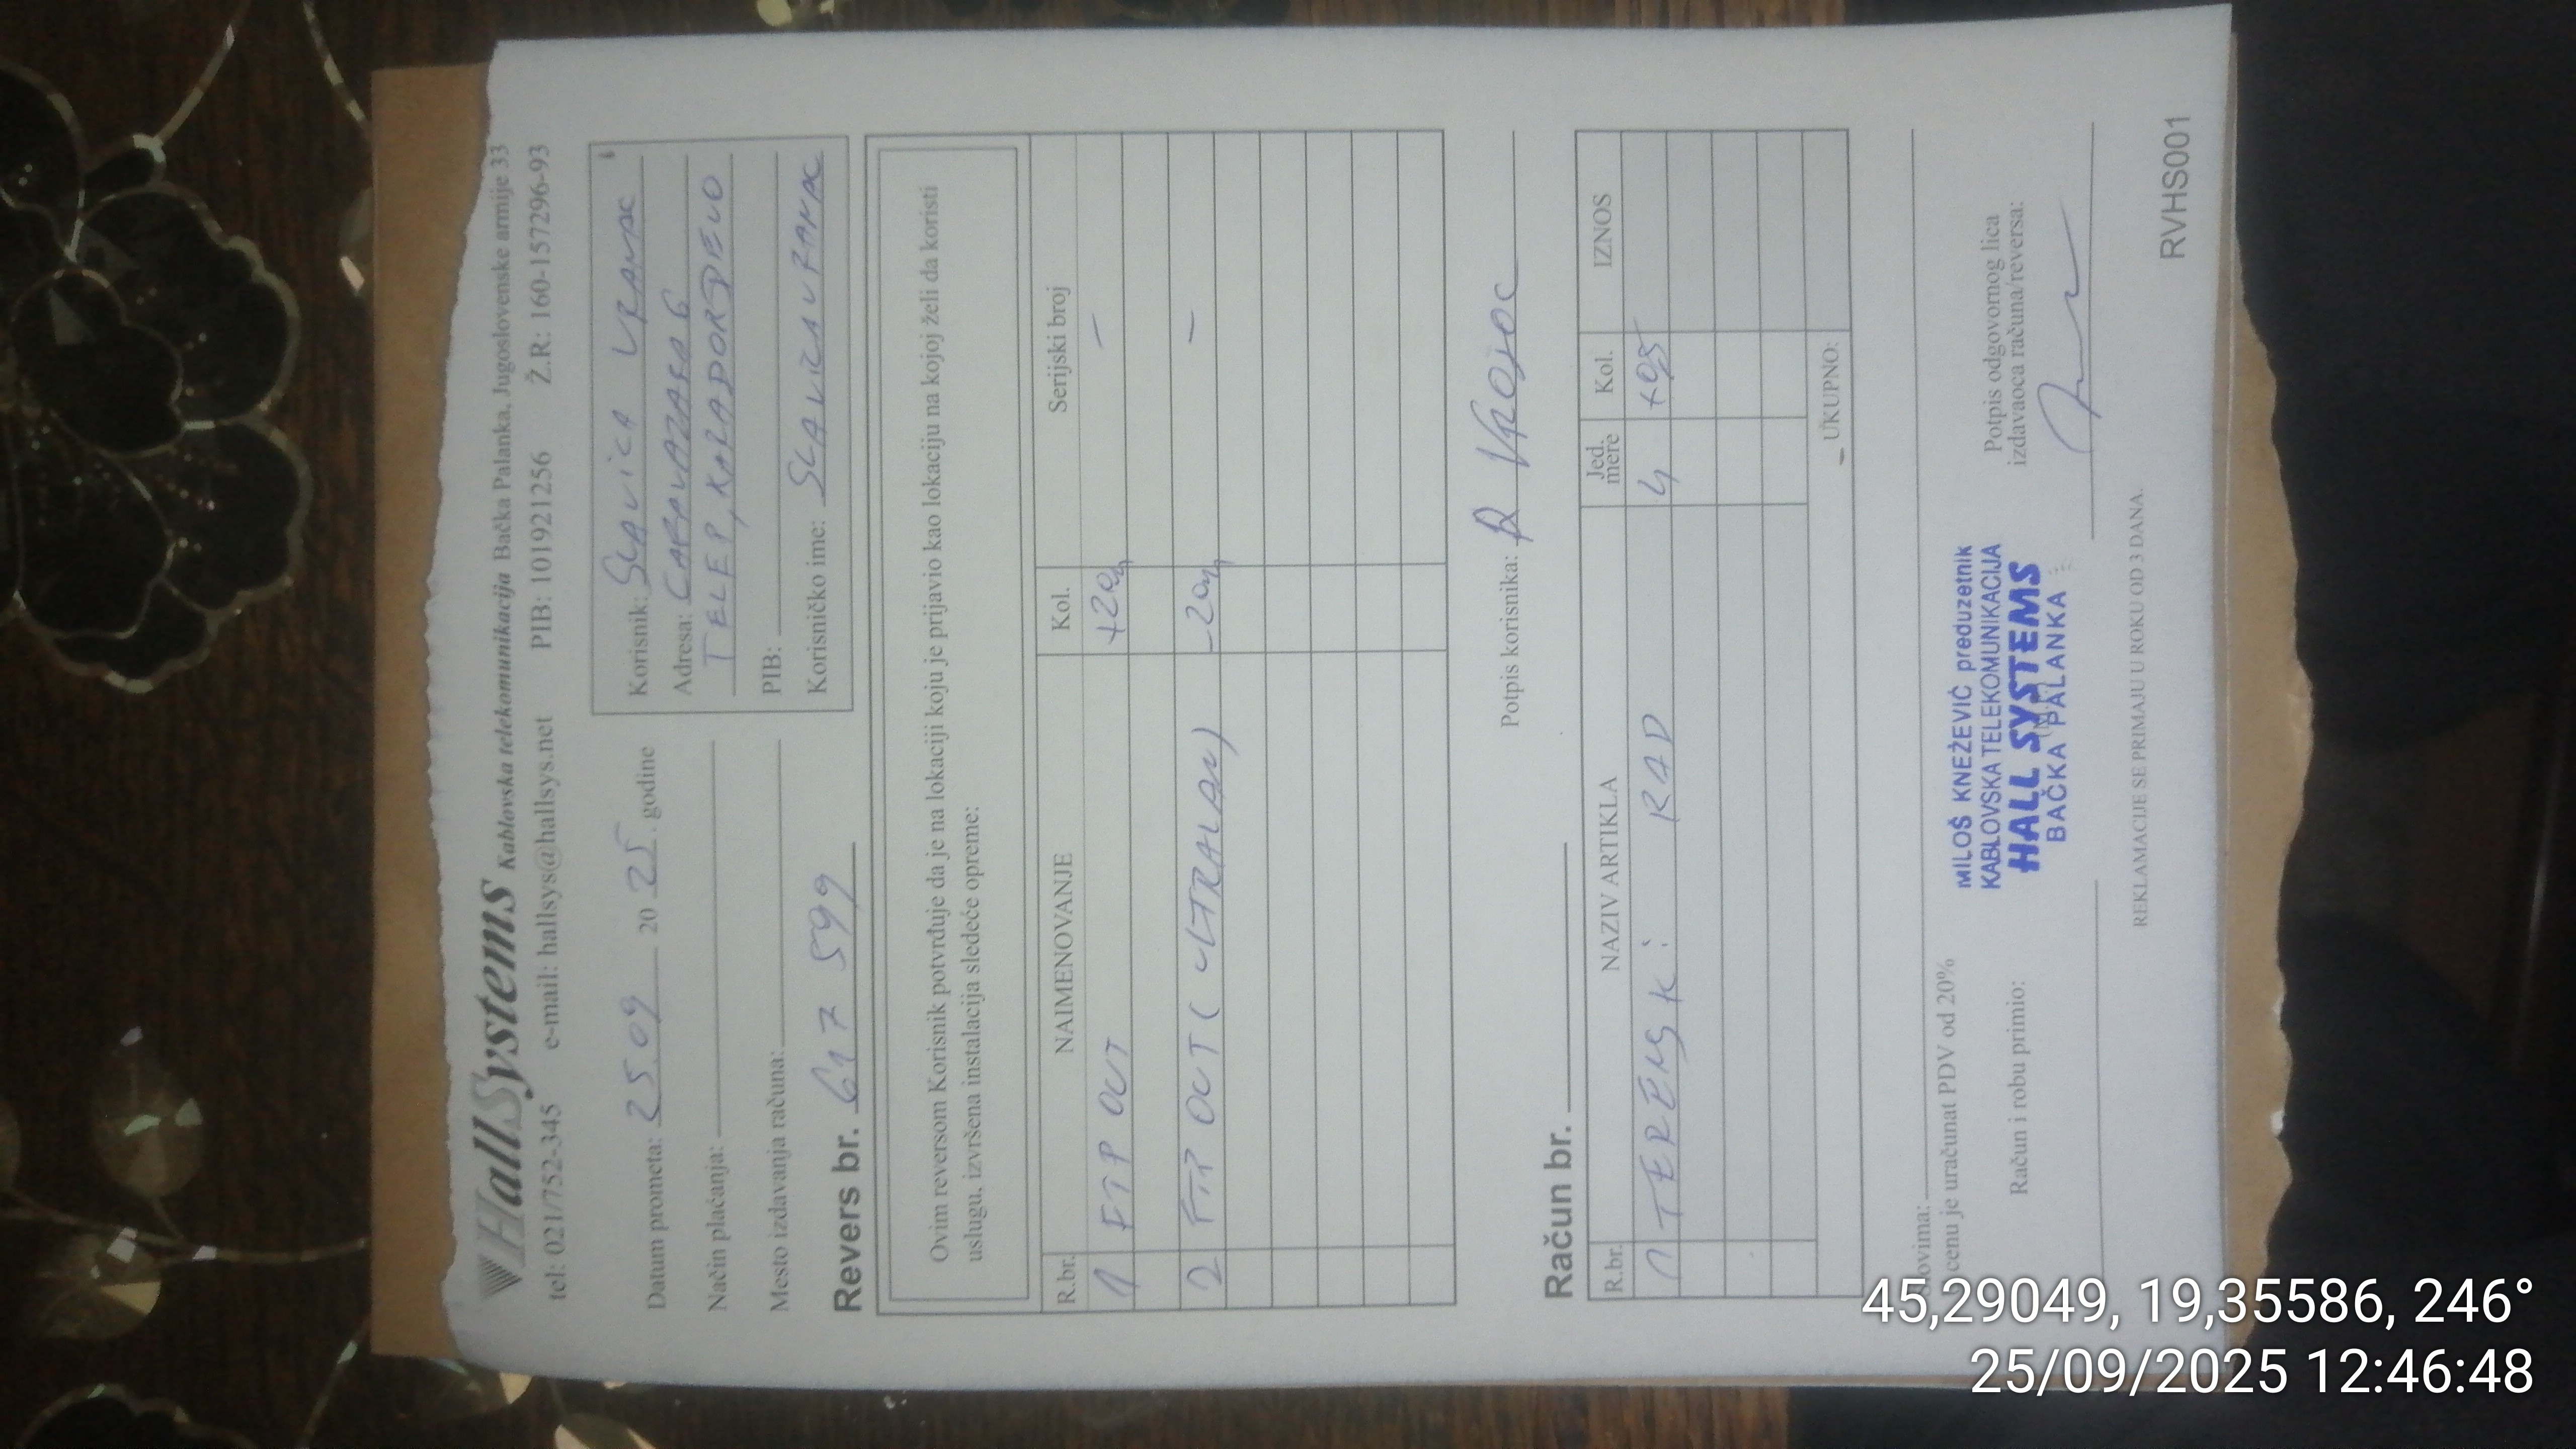 HallSystems Kablovska telekomunikacija Bačka Palanka, Jugoslovenske armije 33
tel: 021/752-345 e-mail: hallsys@hallsys.net PIB: 101921256 Ž.R.: 160-157296-93
Datum prometa: 25.09 2025. godine
Način plaćanja:
Mesto izdavanja računa:
Revers br. 617 599
Korisnik: SLAVICA VRANAC
Adresa: 6
TELEP, KARAĐORĐEVO
PIB:
Korisničko ime: SLAVICAVRANAC
Ovim reversom Korisnik potvrđuje da je na lokaciji koju je prijavio kao lokaciju na kojoj želi da koristi
uslugu, izvršena instalacija sledeće opreme:
R.br. NAIMENOVANJE Kol. Serijski broj
1 FTP OUT +20m –
2 FTP OUT (ULTRALAN) -20m –
Potpis korisnika:
Račun br.
R.br. NAZIV ARTIKLA Jed. mere Kol. IZNOS
1 TERENSKI RAD h +05
UKUPNO:
ovima:
cenu je uračunat PDV od 20%
Račun i robu primio:
MILOŠ KNEŽEVIĆ preduzetnik
KABLOVSKA TELEKOMUNIKACIJA
HALL SYSTEMS
BAČKA PALANKA
Potpis odgovornog lica
izdavaoca računa/reversa:
REKLAMACIJE SE PRIMAJU U ROKU OD 3 DANA.
RVHS001
45,29049, 19,35586, 246°
25/09/2025 12:46:48